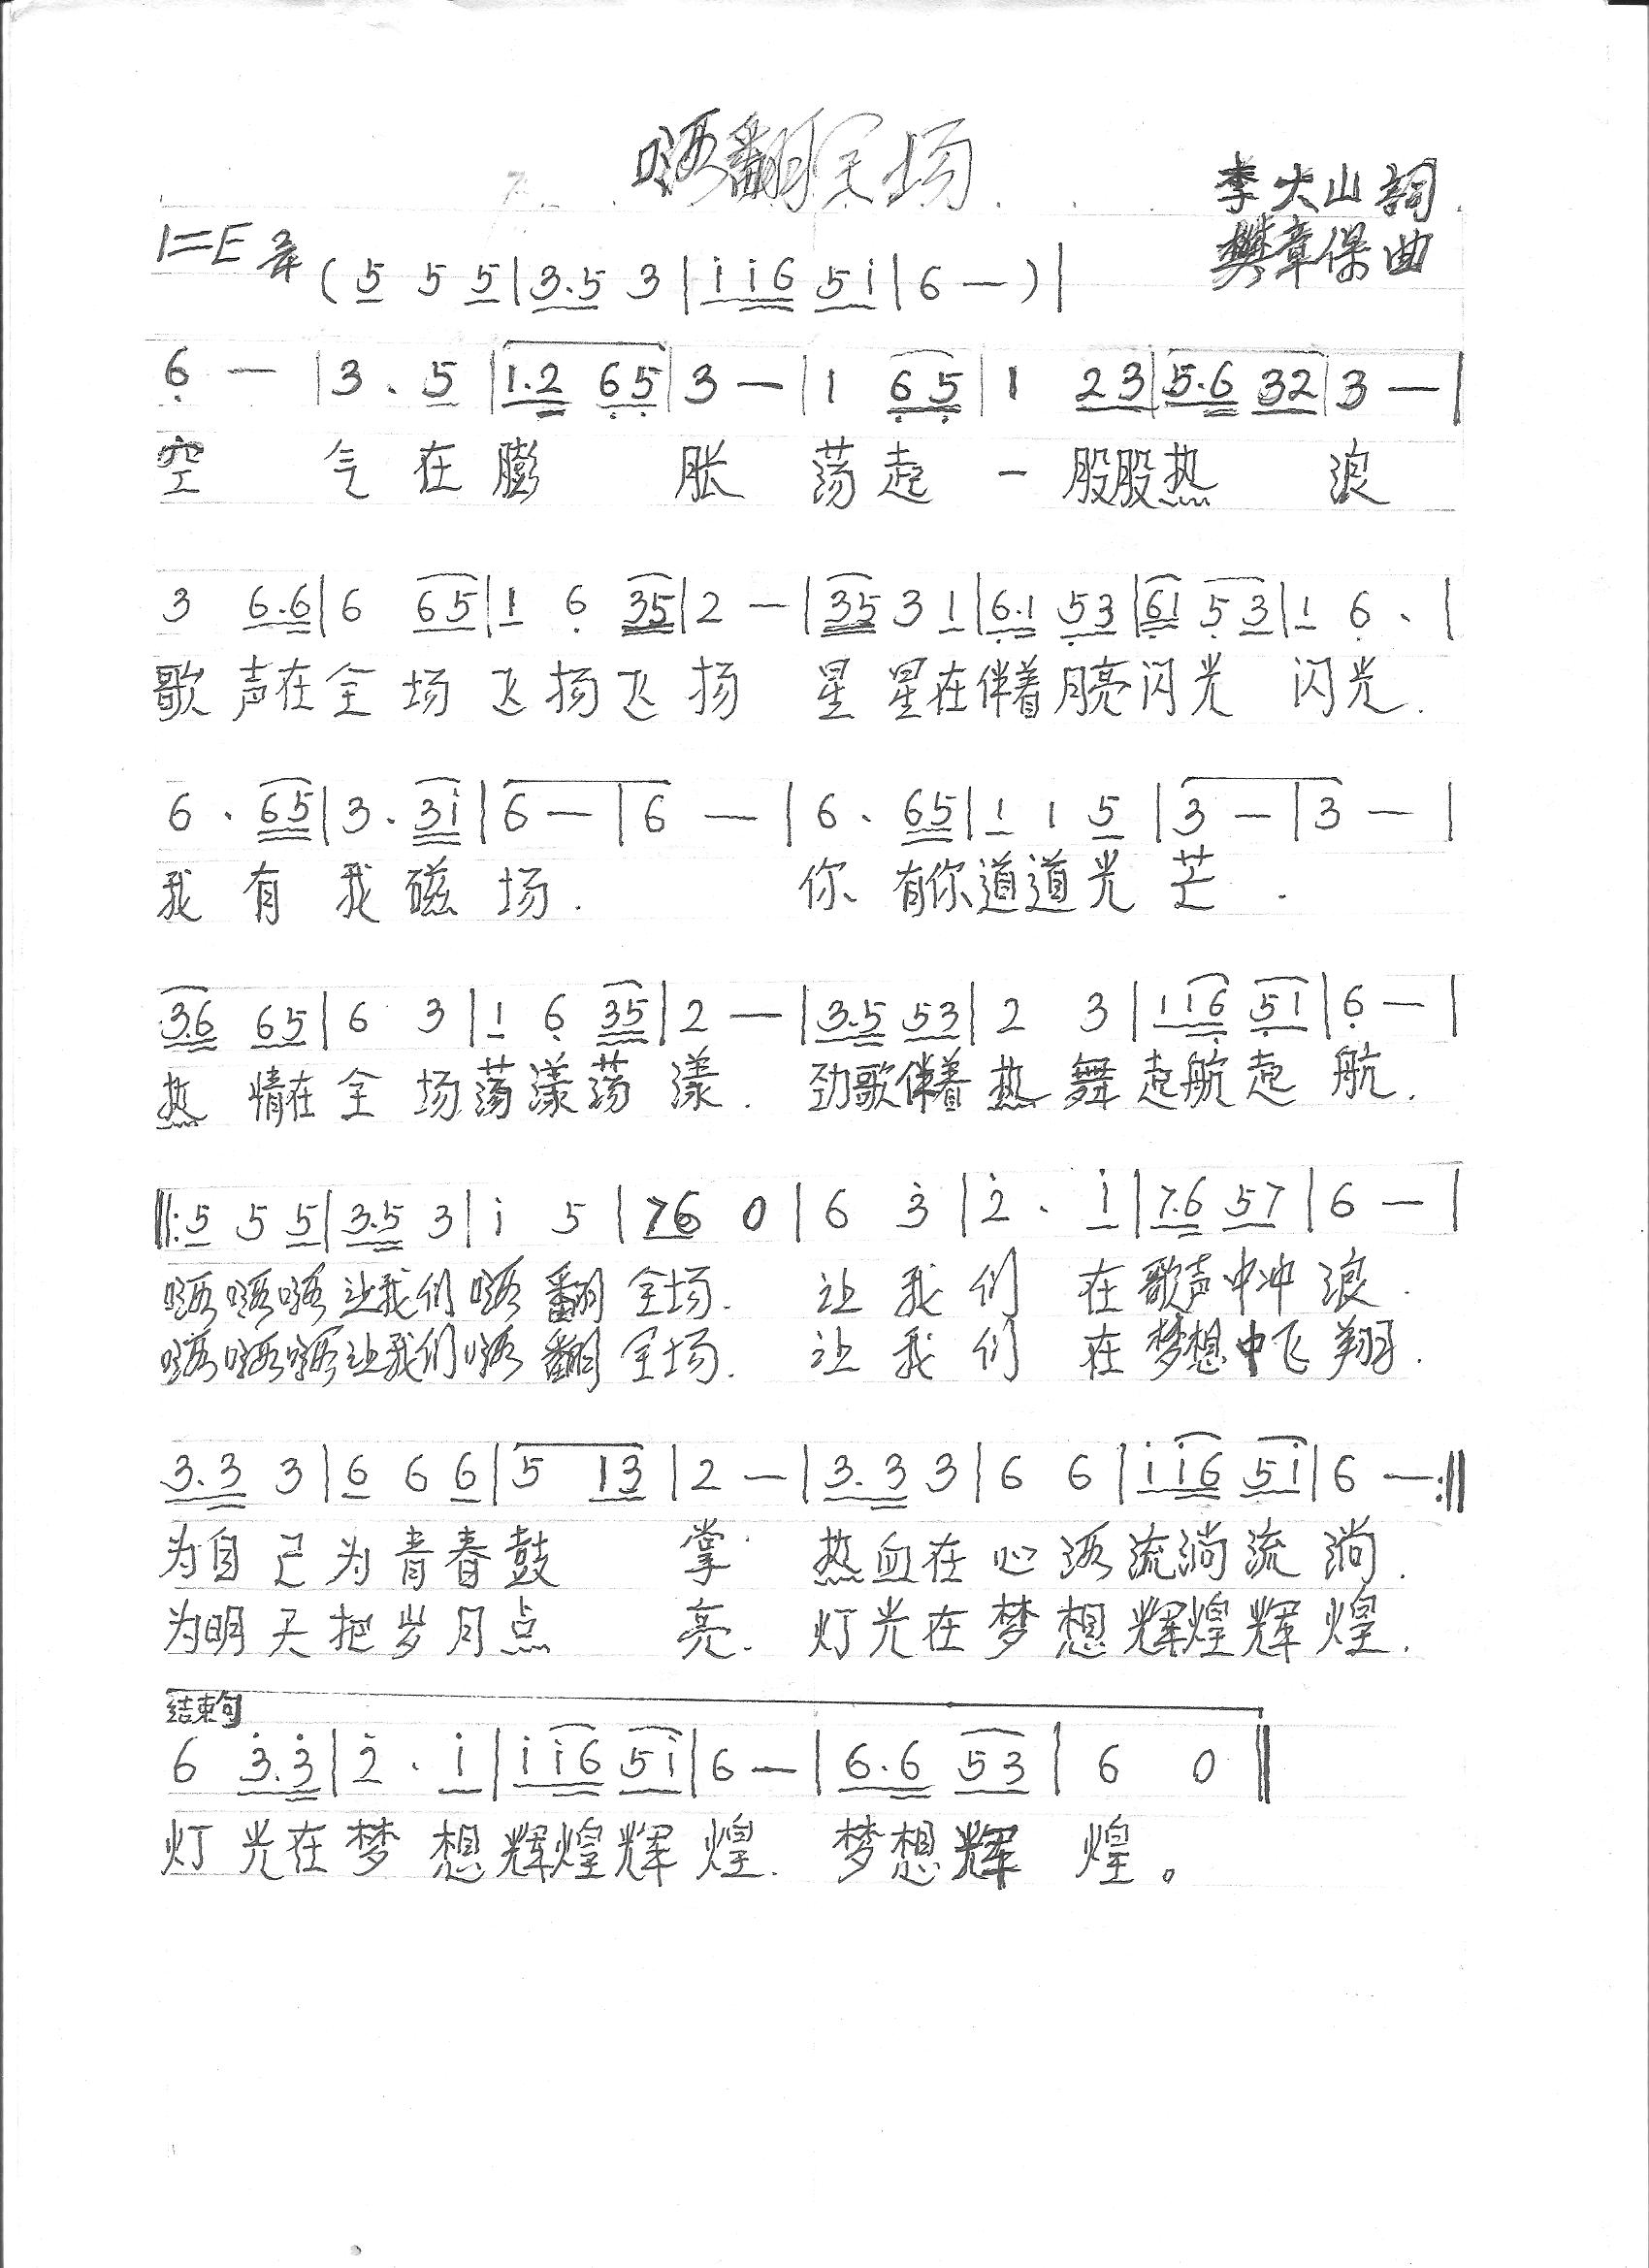 嗨翻全场
李大山 詞
樊章保 曲
1=E 2/4 (5 5 5|3.5 3|i i6 5i|6 —)|
6 — |3 . 5 |1.2 65|3 — |1 65|1 23|5.6 32|3 — |
空 气在膨 胀 荡起 一 股股热 浪
3 6.6|6 65|1 6 35|2 — |35 3 1|6.1 53|61 5 3|1 6 . |
歌 声在全 场 飞扬飞 扬 星 星在伴着月亮闪光 闪光.
6 . 65|3 . 3i|6 — |6 — |6 . 65|1 1 5 |3 — |3 — |
我 有 我 磁 场. 你 有你道道光 芒.
3.6 65|6 3|1 6 35|2 — |3.5 53|2 3|1 16 51|6 — |
热 情在全 场荡漾荡 漾. 劲歌伴着 热 舞起航起 航.
‖:5 5 5|3.5 3|i 5 |76 0|6 3|2 . i|7.6 57|6 — |
嗨嗨嗨 让我们 嗨 翻 全场. 让 我 们 在 歌声中冲 浪.
嗨嗨嗨让我们嗨 翻 全场. 让 我 们 在 梦想中飞 翔.
3.3 3|6 6 6|5 13|2 — |3.3 3|6 6|i i6 5i|6 — :‖
为自己为青春鼓 掌 热血在心 海 流淌流 淌.
为明天把岁月点 亮. 灯光在梦 想 辉煌辉 煌.
结束句
6 3.3|2 . i|i i6 5i|6 — |6.6 53|6 0‖
灯 光在梦 想 辉煌辉 煌. 梦想辉 煌。